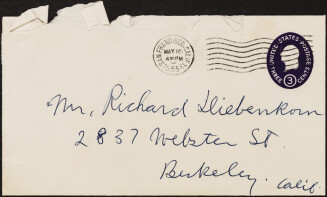 SAN FRANCISCO, CALIF.
MAY 16
4 PM
1955
UNITED STATES POSTAGE
THREE 3 CENTS
Mr. Richard Diebenkorn
2837 Webster St
Berkeley, Calif.